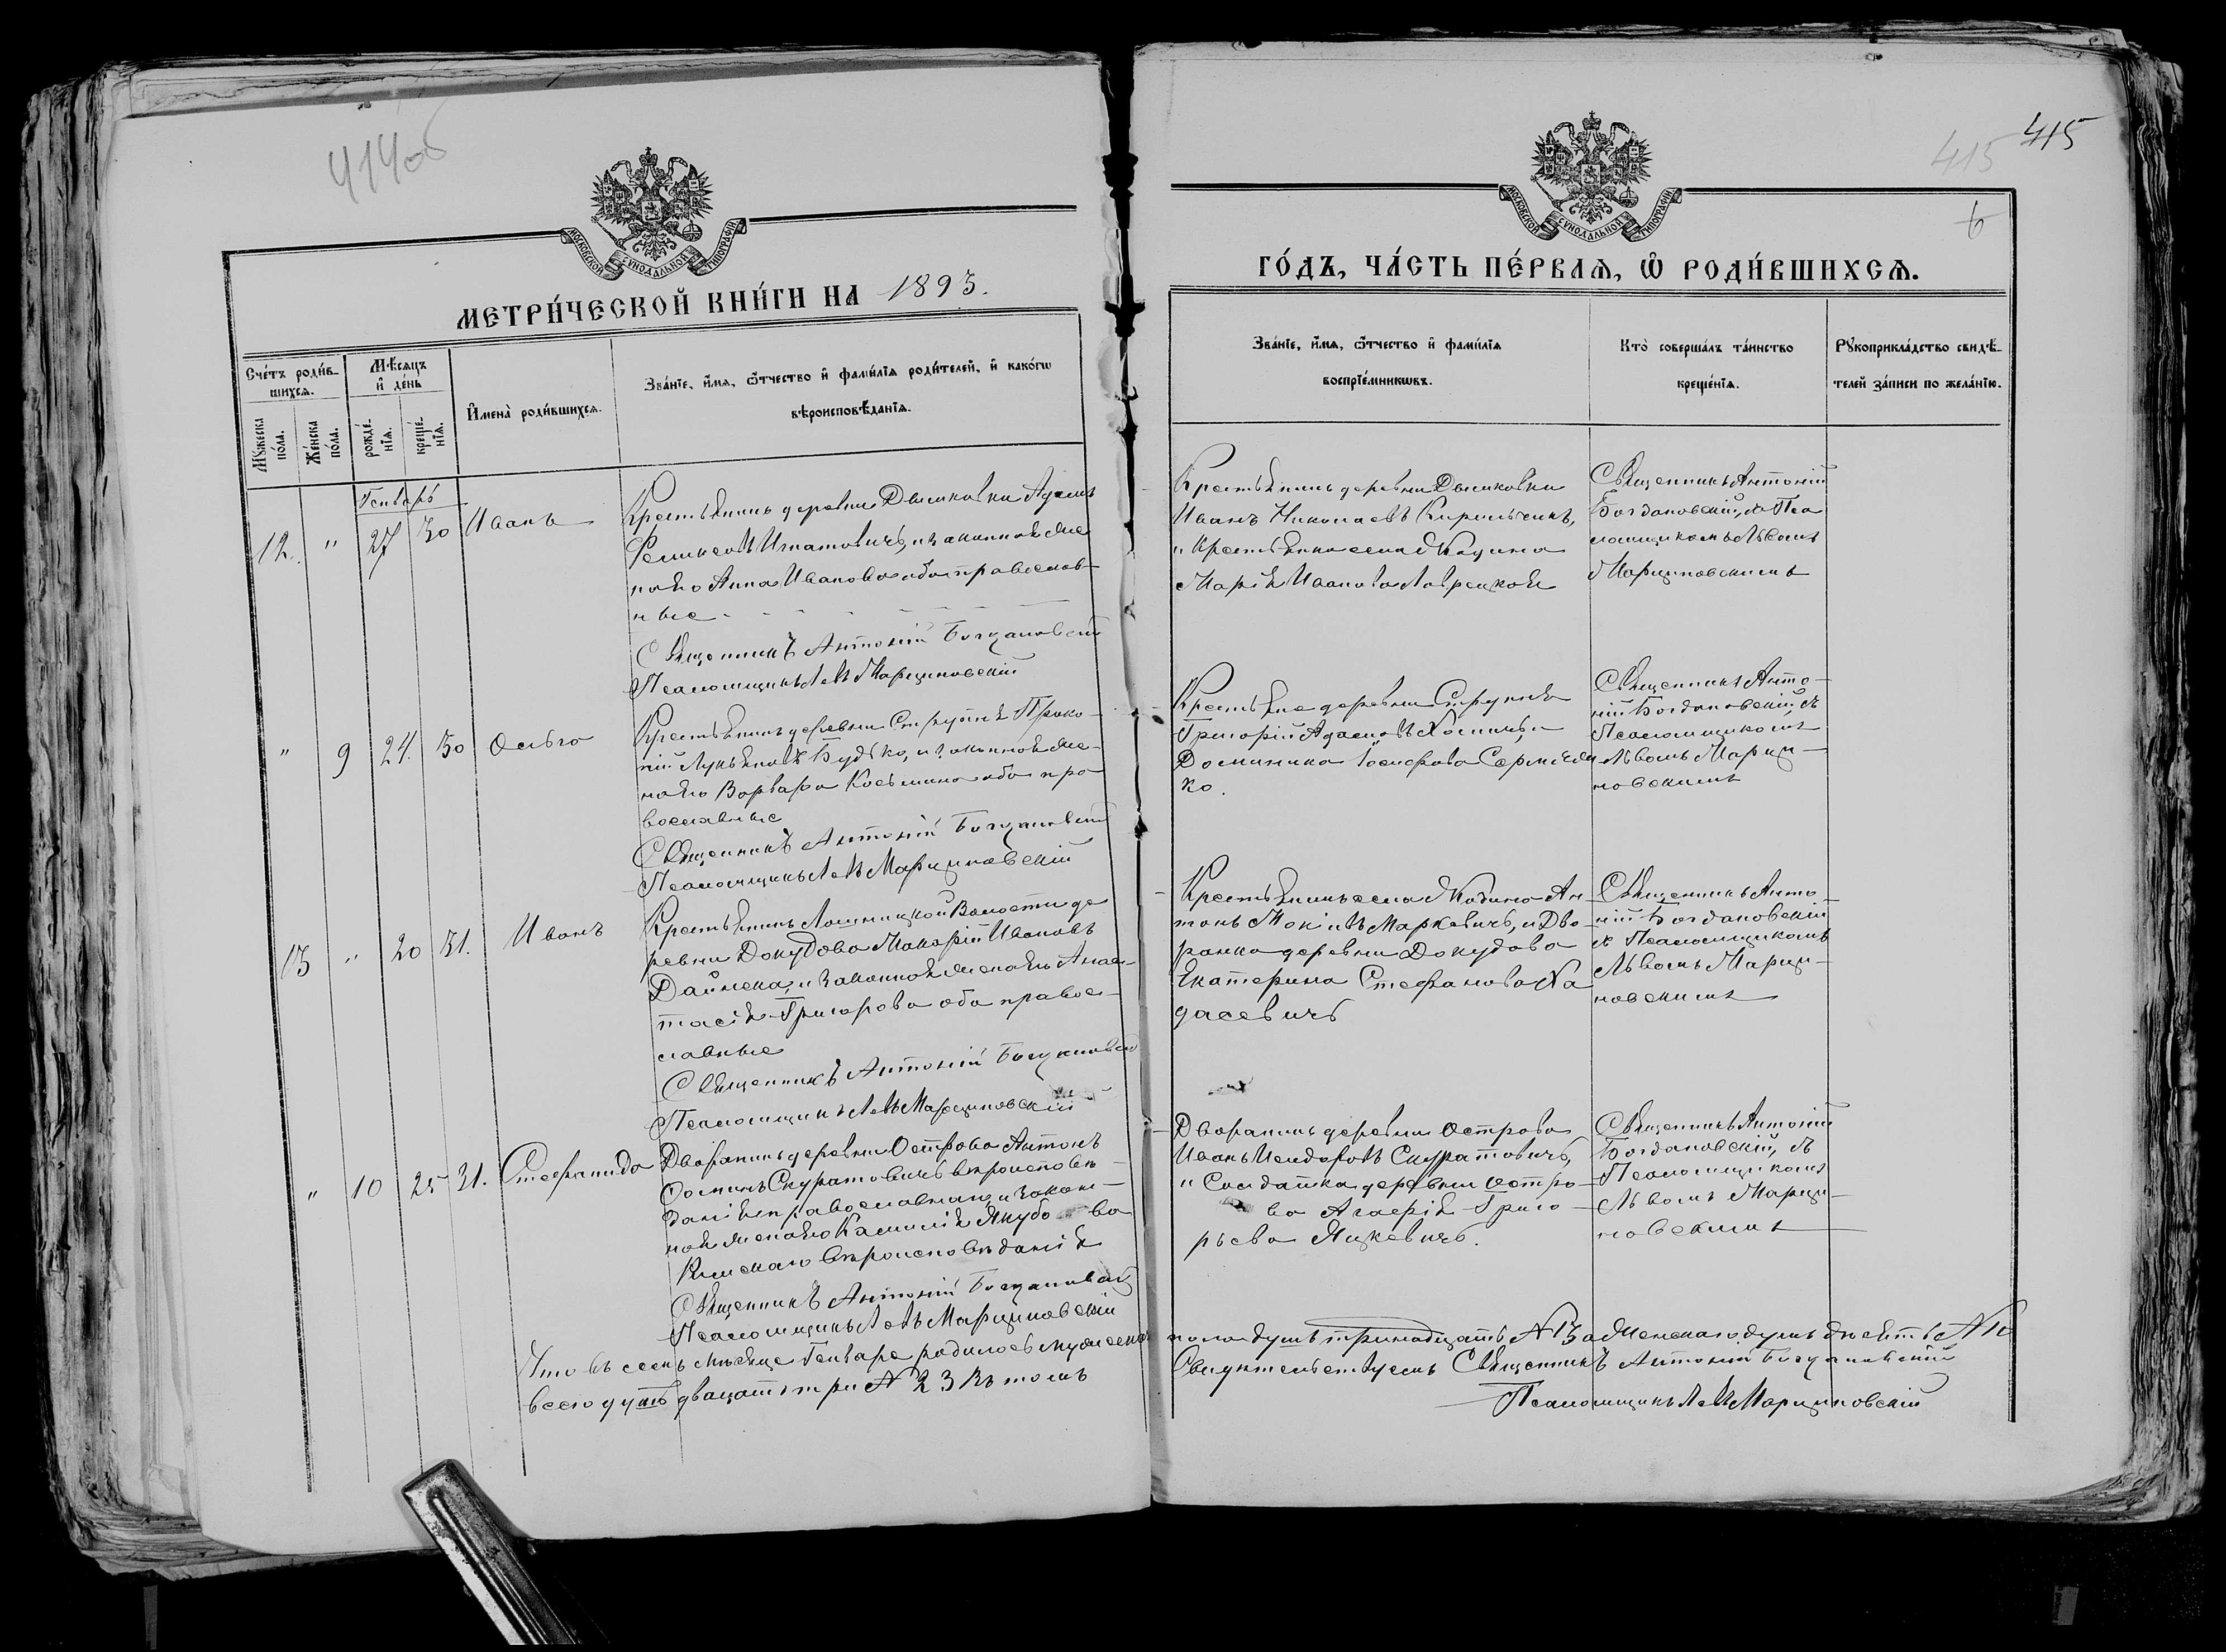 414об
МОСКОВСКОЙ СѴНОДАЛЬНОЙ ТИПОГРАФІИ
МЕТРИ́ЧЕСКОЙ КНИ́ГИ НА 1893.
Сче́тъ роди́в-
шихсѧ.
Мѣ́сѧцъ
и҆ де́нь
И҆мена̀ роди́вшихсѧ.
Зва́нїе, и҆́мѧ, ѻ҆́тчество и҆ фами́лїѧ роди́телей, и҆ како́гѡ
вѣроисповѣ́данїѧ.
Мꙋ́жеска
по́ла.
Же́нска
по́ла.
рожде́-
нїѧ.
креще́-
нїѧ.
Генварь
12. " 27 30 Иванъ
Крестьянинъ деревни Дымковки Адамъ
Феликсовъ Игнатовичъ, и законная же
на его Анна Иванова оба православ-
ные
Священникъ Антоній Богдановскій
Псаломщикъ Левъ Марциновскій
" 9 24. 30 Ольга
Крестьянинъ деревни Струпня Проко-
пій Лукьяновъ Будько, и законная же-
на его Варвара Косьмина оба пра
вославные
Священникъ Антоній Богдановскій
Псаломщикъ Левъ Марциновскій
13 " 20 31. Иванъ
Крестьянинъ Лошницкой Волости де
ревни Докудова Макарій Ивановъ
Дайнека, и законная жена его Анас-
тасія Григорова оба правос-
лавные
Священникъ Антоній Богдановскій
Псаломщикъ Левъ Марциновскій
" 10 25 31. Стефанида
Дворянинъ деревни Острова Антонъ
Фоминъ Скуратовичъ вѣроисповѣ-
данія православнаго, и закон-
ная жена его Камилія Якубова
Римскаго вѣроисповѣданія
Священникъ Антоній Богдановскій
Псаломщикъ Левъ Марциновскій
Что въ семъ мѣсяце Генваре родилось мужеска
всего душъ двацать три № 23 въ томъ
415 415
6
МОСКОВСКОЙ СѴНОДАЛЬНОЙ ТИПОГРАФІИ
ГО́ДЪ, ЧА́СТЬ ПЕ́РВАѦ, Ѡ҆ РОДИ́ВШИХСѦ.
Зва́нїе, и҆́мѧ, ѻ҆́тчество и҆ фами́лїѧ
воспрїе́мникѡвъ.
Кто̀ соверша́лъ та́инство
креще́нїѧ.
Рꙋкоприкла́дство свидѣ́-
телей за́писи по жела́нїю.
Крестьянинъ деревни Дымковки
Иванъ Николаевъ Кирильчикъ,
и Крестьянка села
Марія Иванова Лаврецкая
Священникъ Антоній
Богдановскій, съ Пса
ломщикомъ Львомъ
Марциновскимъ
Крестьяне деревни Струпня
Григорій Адамовъ Хомичъ, и
Доминика Іосифова
ко.
Священникъ Анто-
ній Богдановскій, съ
Псаломщикомъ
Львомъ Марци-
новскимъ
Крестьянинъ села Ан-
тонъ Мокіевъ Маркевичъ, и Дво-
рянка деревни Докудова
Екатерина Стефанова Ха
дасевичъ
Священникъ Анто-
ній Богдановскій
съ Псаломщикомъ
Львомъ Марци-
новскимъ
Дворянинъ деревни Острова
Иванъ Исидоровъ Скуратовичъ,
и Солдатка деревни Остро-
ва Агафія Григо-
рьева Яцкевичъ.
Священникъ Антоній
Богдановскій, съ
Псаломщикомъ
Львомъ Марци-
новскимъ
пола душъ тринадцать № 13 а Женскаго душъ десять № 10
Свидѣтельствуемъ Священникъ Антоній Богдановскій
Псаломщикъ Левъ Марциновскій